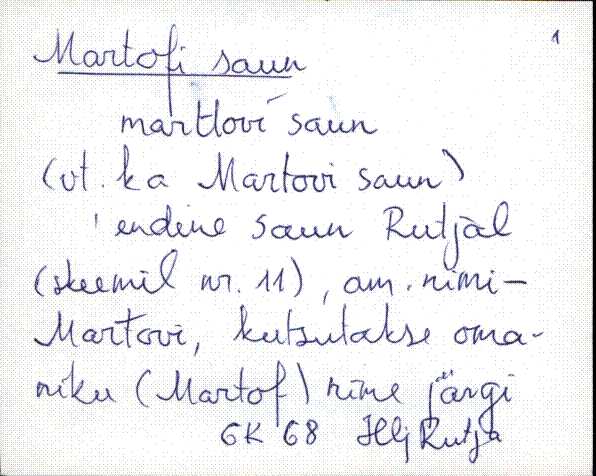 1
Martofi saun
martlovi saun
(vt. ka Martovi saun)
endine saun Rutjal
(skeemil nr. 11), am. nimi-
Martovi, kutsutakse oma-
niku (Martof) nime järgi
GK 68 Hlj Rutja